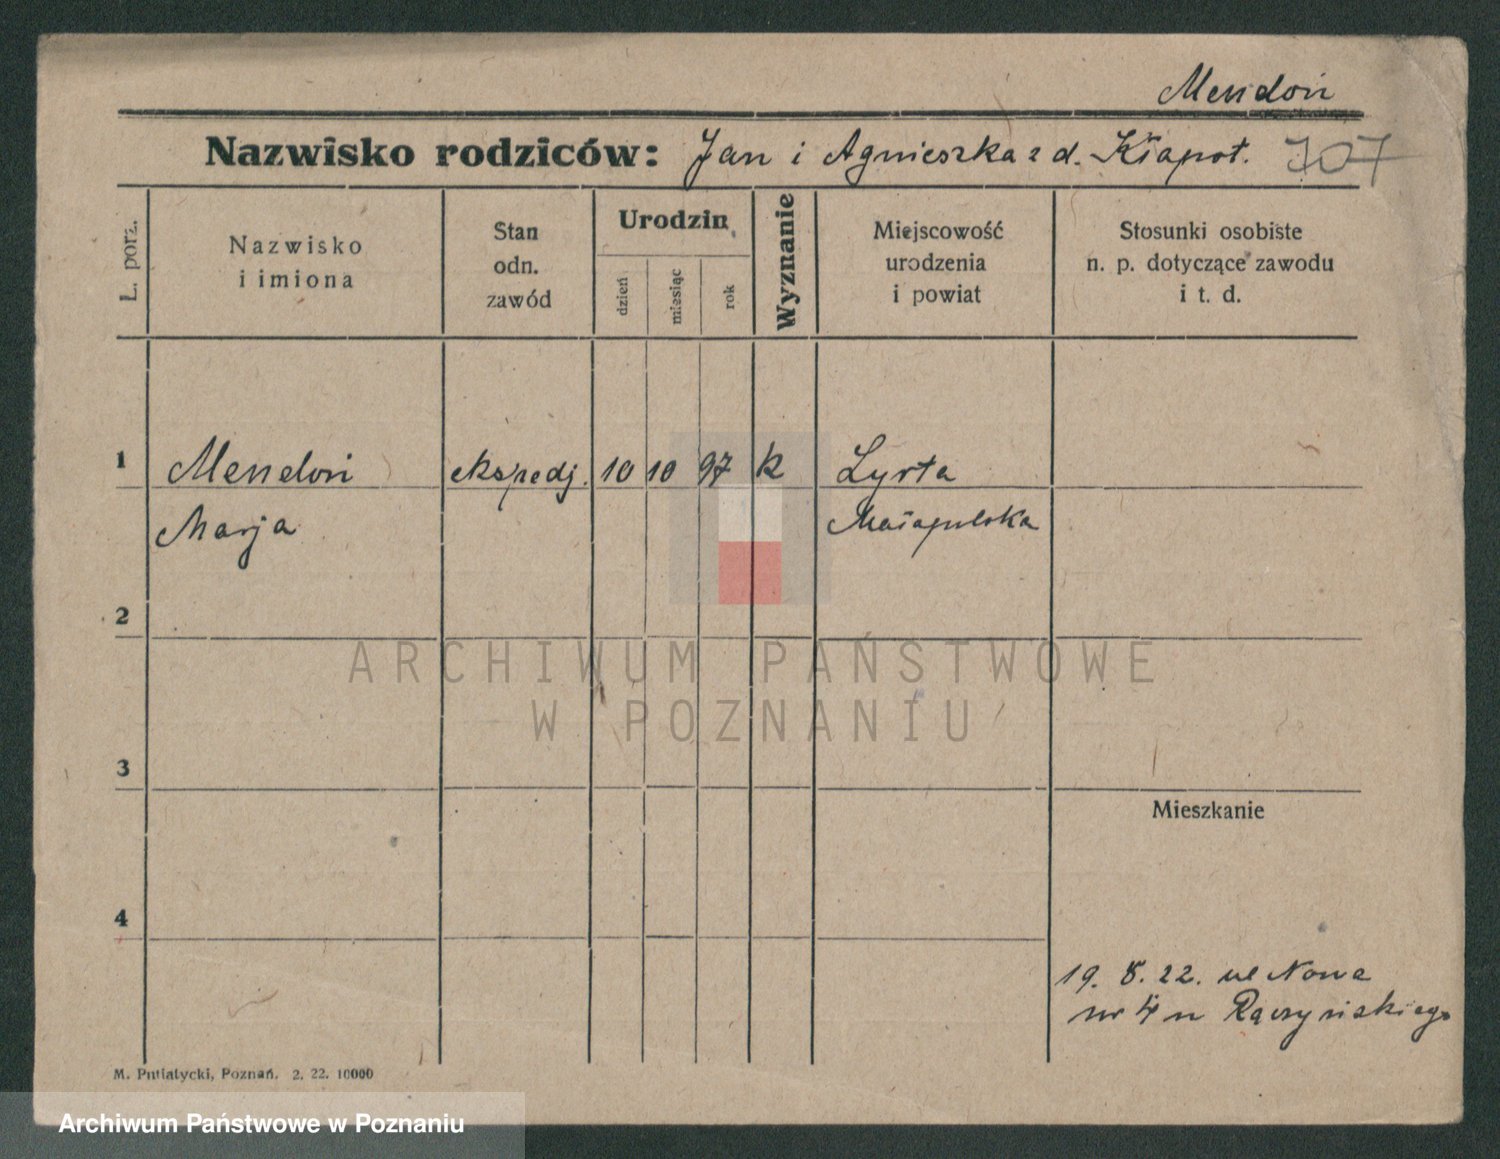 Mendoń
Nazwisko rodziców: Jan i Agnieszka z d. Kłapot. 707
L. porz.
Nazwisko
i imiona
Stan
odn.
zawód
Urodzin
dzień
miesiąc
rok
Wyznanie
Miejscowość
urodzenia
i powiat
Stosunki osobiste
n. p. dotyczące zawodu
i t. d.
1 Mendoń ekspedj. 10 10 97 k Lyrta
Marja Małapolska
2
3
Mieszkanie
4
19. 8. 22. ul Nowa
nr 4 u Rączyńskiego
M. Putiatycki, Poznań. 2. 22. 10000
ARCHIWUM PAŃSTWOWE
W POZNANIU
Archiwum Państwowe w Poznaniu